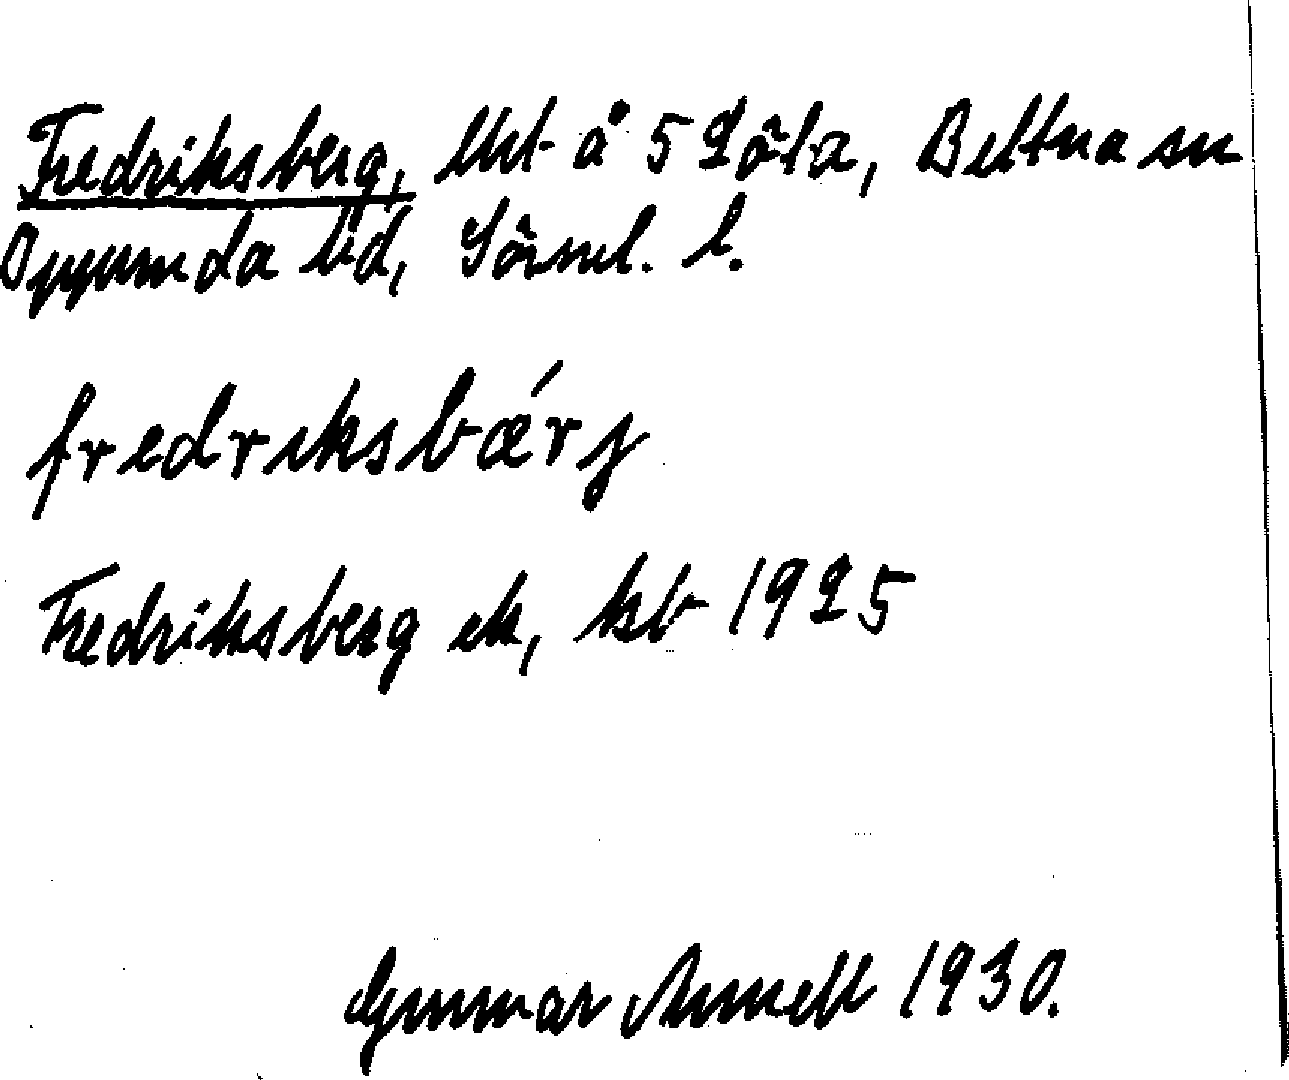 Fredriksberg, lht å 5 Löta, Bettna sn
Oppunda hd, Sörml. l.
fredriksbǽrj
Fredriksberg ek, kb 1925
Gunnar Arnell 1930.